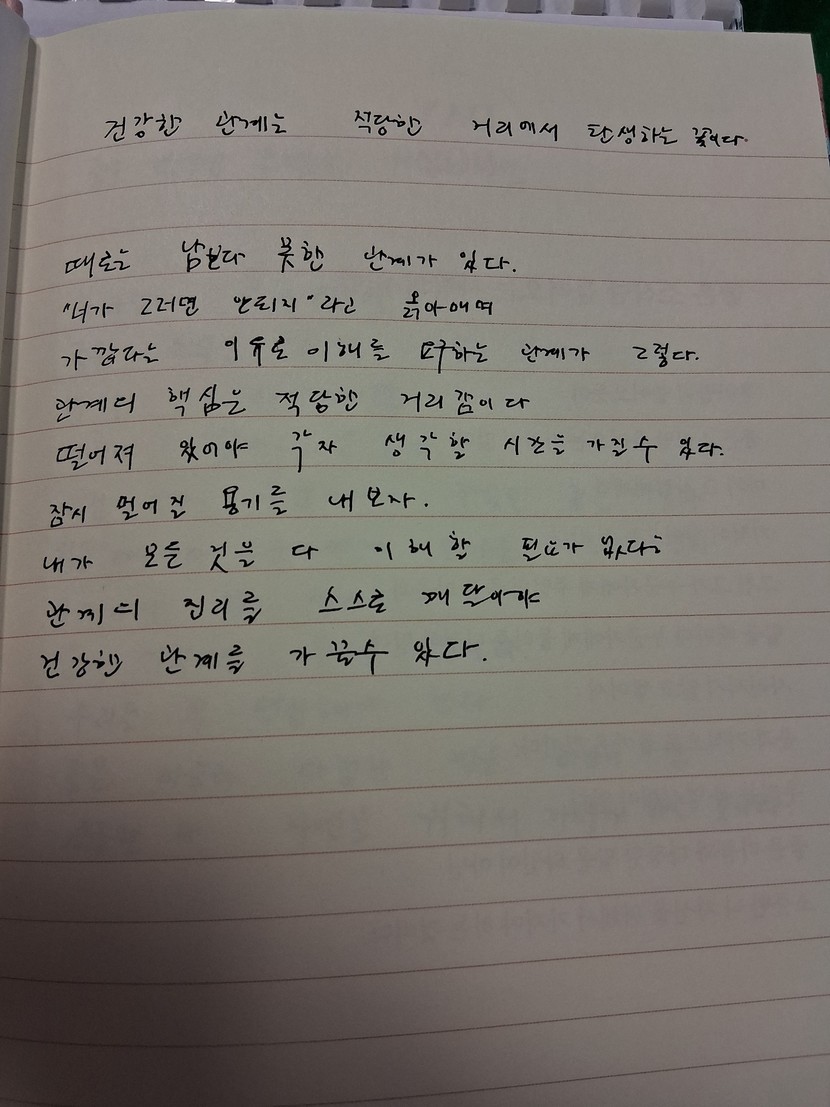 건강한 관계는 적당한 거리에서 탄생하는 꽃이다.
때로는 남보다 못한 관계가 있다.
"너가 그러면 안되지"라고 옭아애며
가깝다는 이유로 이해를 요구하는 관계가 그렇다.
관계의 핵심은 적당한 거리감이다
떨어져 있어야 각자 생각할 시간을 가질수 있다.
잠시 멀어질 용기를 내 보자.
내가 모든 것을 다 이해할 필요가 없다는
관계의 진리를 스스로 깨달아야
건강한 관계를 가꿀수 있다.